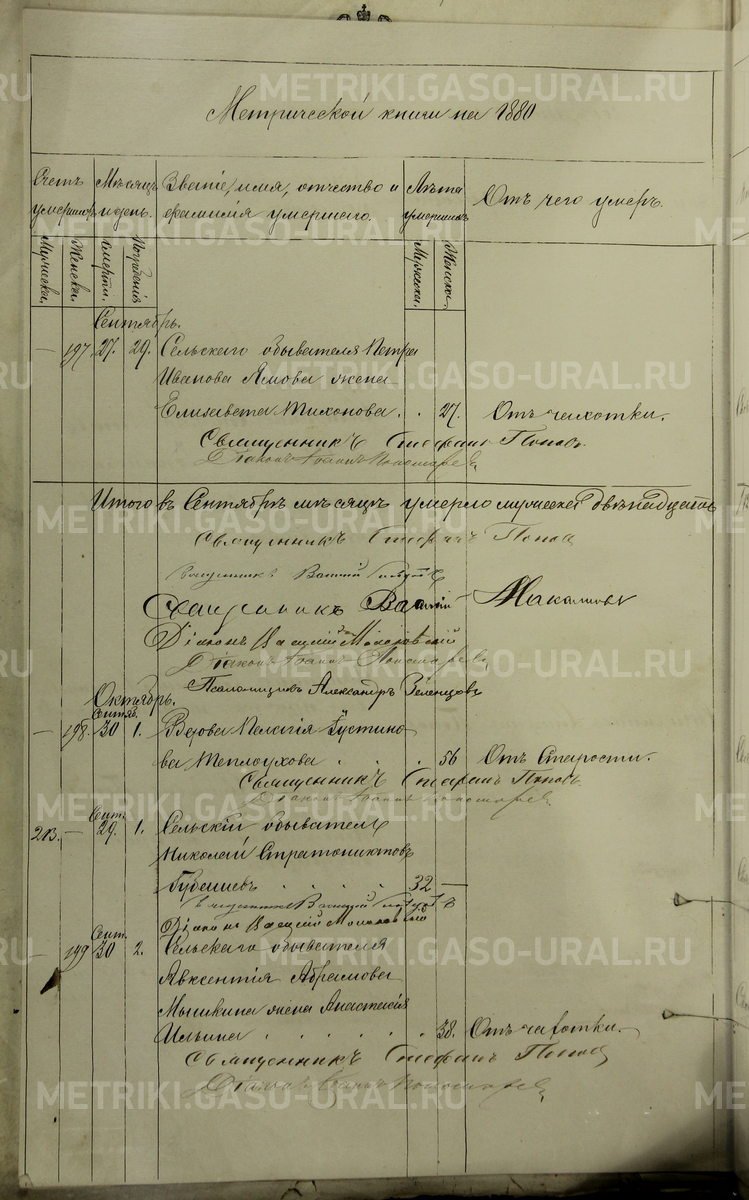 METRIKI.GASO-URAL.RU
Метрической книги на 1880
Счетъ умершихъ
Мѣсяцъ и день.
Званіе, имя, отчество и фамилія умершаго.
Лѣта умершихъ
Отъ чего умеръ.
Мужеска.
Женска.
Смерти.
Погребенія
Мужеска.
Женска.
Сентябрь.
— 197. 27. 29. Сельскаго обывателя Петра
Иванова Ямова жена
Елисавета Тихонова . . 27. Отъ чахотки.
Священникъ Стефанъ Поповъ
Діаконъ Іоаннъ Пономаревъ
Итого въ Сентябрѣ мѣсяцѣ умерло мужеска двѣнадцать
Священникъ Стефанъ Поповъ
Священникъ
Діаконъ
Діаконъ Іоаннъ Пономаревъ
Псаломщикъ Александръ Зеленцовъ
Октябрь.
Сентяб.
— 198. 30 1. Вдова Пелагія Іустино
ва Теплоухова . . . . 56 Отъ Старости.
Священникъ Стефанъ Поповъ
Діаконъ Іоаннъ Пономаревъ
Сент.
213. — 29. 1. Сельскій обыватель
Николай Стратониктовъ
. . . . 32 —
Діаконъ
Сент.
— 199 30 2. Сельскаго обывателя
Авксентія Абрамова
Мышкина жена Анастасія
Ильина . . . . . . 38. Отъ чахотки.
Священникъ Стефанъ Поповъ
Діаконъ Іоаннъ Пономаревъ